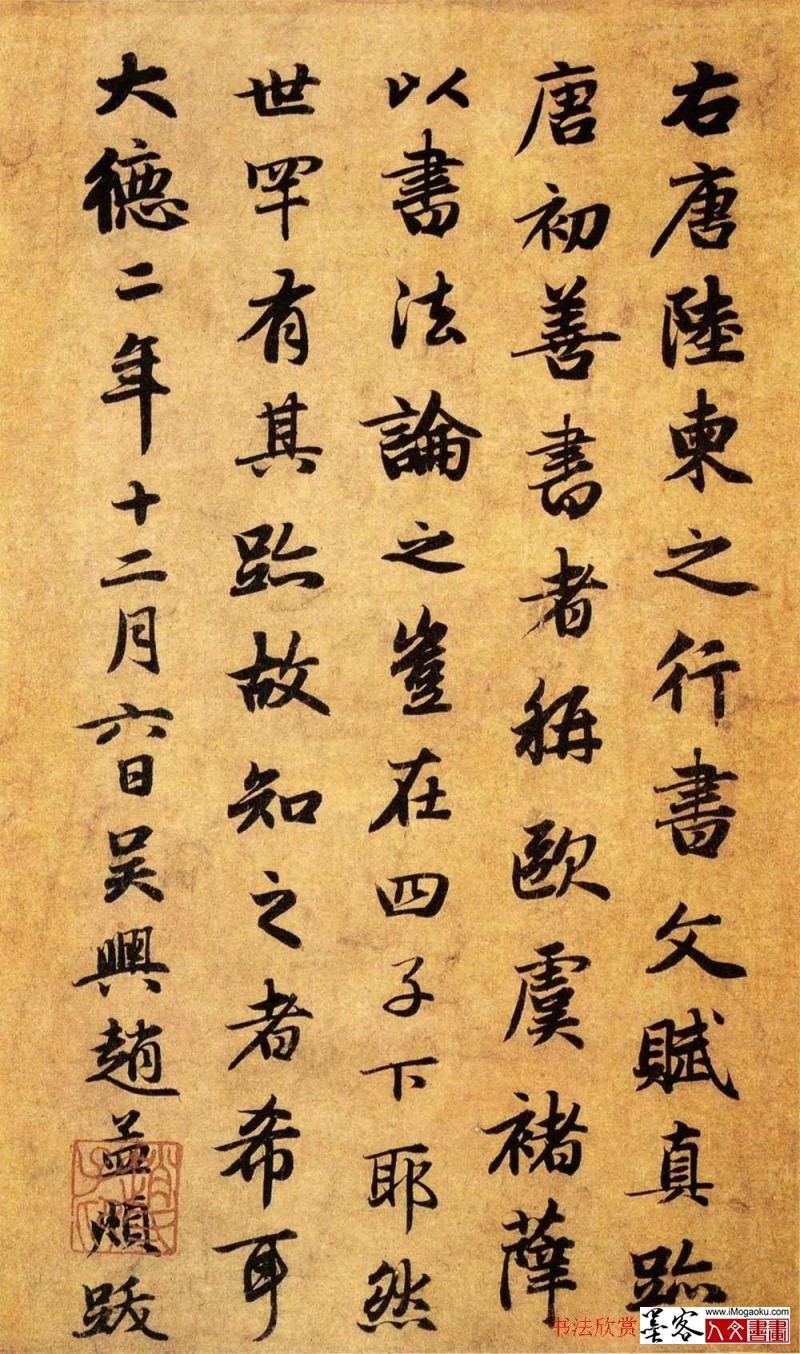 右唐陸柬之行書文賦真跡
唐初善書者稱歐虞褚薛
以書法論之豈在四子下耶然
世罕有其跡故知之者希耳
大德二年十二月六日吴興趙孟頫跋
趙氏子昂
书法欣赏
墨客
www.iMogaoku.com
人文書畫